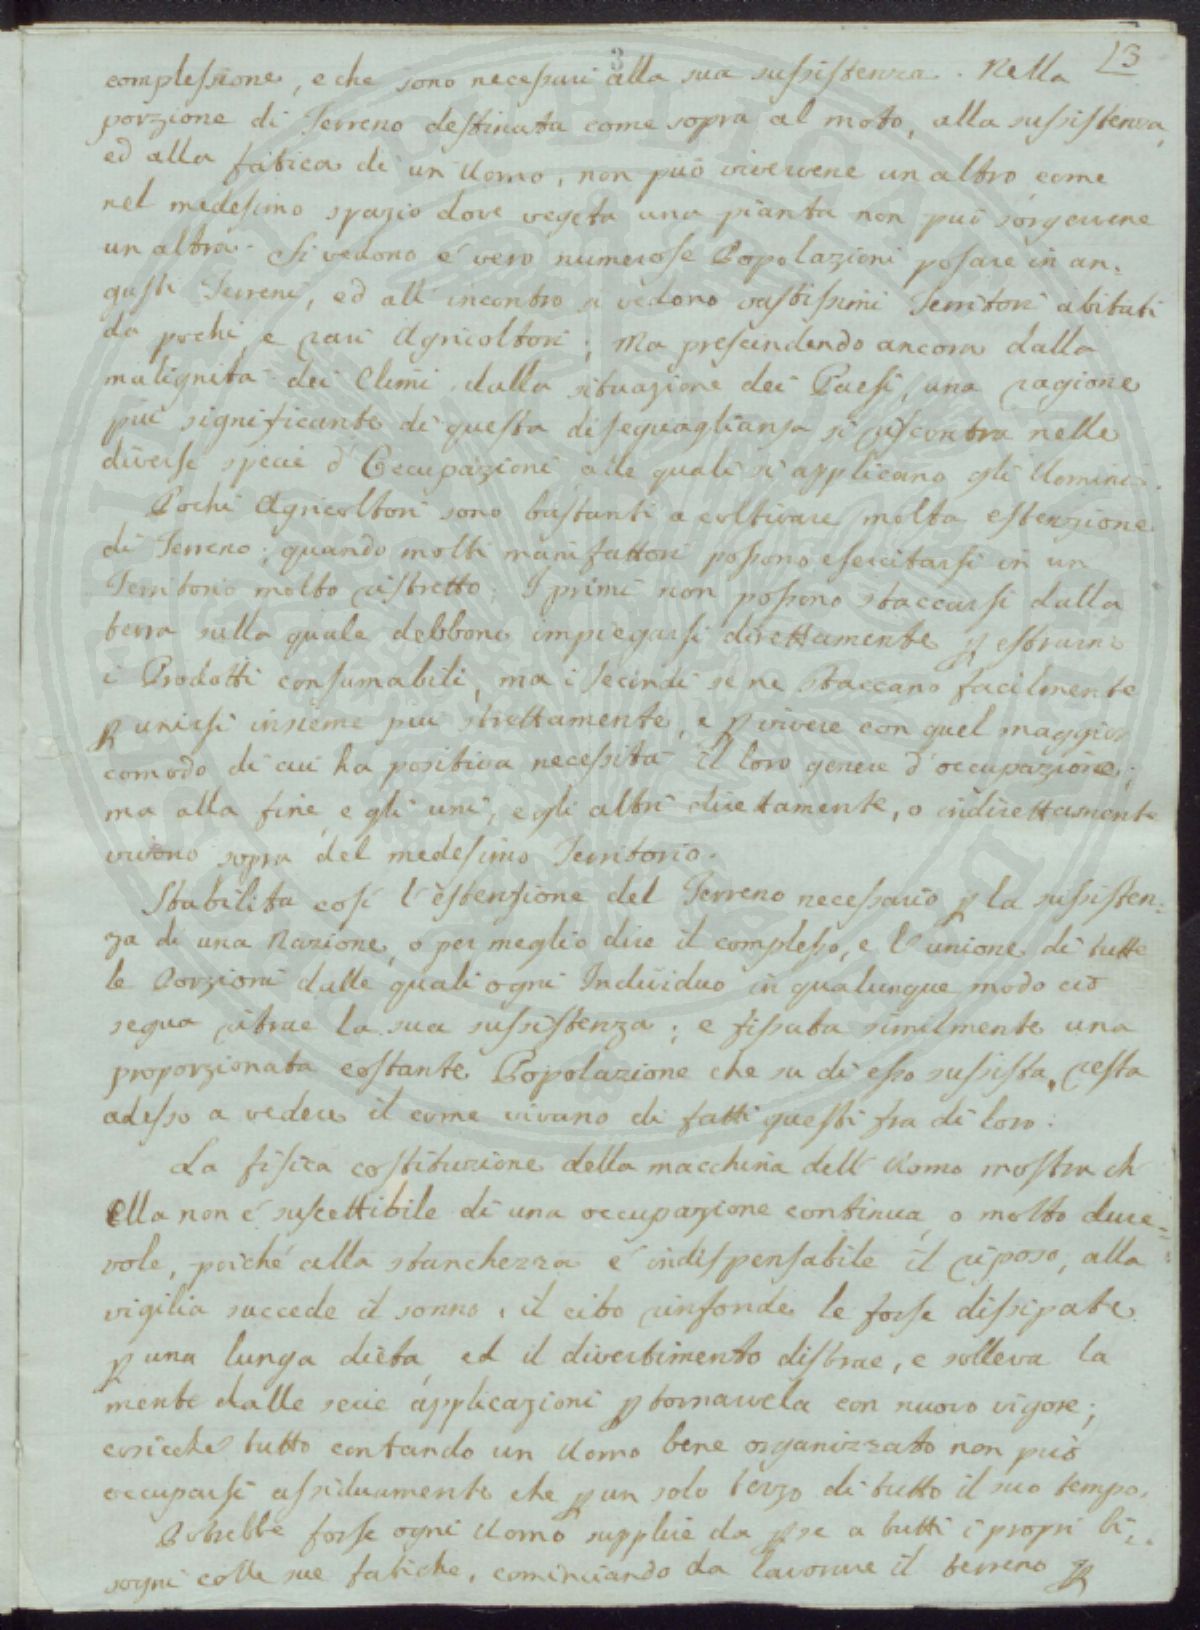 3 13
complessione, e che sono necessari alla sua sussistenza. Nella
porzione di Terreno destinata come sopra al moto, alla sussistenza,
ed alla fatica di un Uomo, non può vivervene un altro come
nel medesimo spazio dove vegeta una pianta non può sorgervene
un altra. Si vedono é vero numerose Popolazioni posare in an-
gusti Terreni, ed all' incontro si vedono vastissimi Territori abitati
da pochi e rari Agricoltori; Ma prescindendo ancora dalla
malignità dei Climi dalla situazione dei Paesi, una ragione
piu significante di questa diseguaglianza si riscontra nelle
diverse specie d' Occupazioni alle quali si applicano gli Uomini.
Pochi Agricoltori sono bastanti a coltivare molta estenzione
di Terreno; quando molti manifattori possono esercitarsi in un
Territorio molto ristretto; I primi non possono staccarsi dalla
terra sulla quale debbono impiegarsi direttamente p estrarne
i Prodotti consumabili, ma i secondi se ne staccano facilmente
p unirsi insieme piu strettamente, e p vivere con quel maggior
comodo di cui ha positiva necessità il loro genere d' occupazione;
ma alla fine, e gli uni, e gli altri direttamente, o indirettamente
vivono sopra del medesimo Territorio.
Stabilita cosí l' estenzione del Terreno necessario p la sussisten-
za di una Nazione, o per meglio dire il complesso, e l' unione di tutte
le Porzioni dalle quali ogni Individuo in qualunque modo ciò
segua ritrae la sua sussistenza; e fissata similmente una
proporzionata costante Popolazione che su di esso sussista, resta
adesso a vedere il come vivano di fatti questi fra di loro.
La fisica costituzione della macchina dell' Uomo mostra ch'
ella non é suscettibile di una occupazione continua, o molto dure-
vole, poiché alla stanchezza é indispensabile il riposo, alla
vigilia succede il sonno, il cibo rinfonde le forse dissipate
p una lunga dieta, ed il divertimento distrae, e solleva la
mente dalle serie applicazioni p tornarvela con nuovo vigore;
cosicche tutto contando un Uomo bene organizzato non può
occuparsi assiduamente che p un solo terzo di tutto il suo tempo.
Potrebbe forse ogni Uomo supplire da p se a tutti i propri bi-
sogni colle sue fatiche, cominciando da lavorare il terreno p